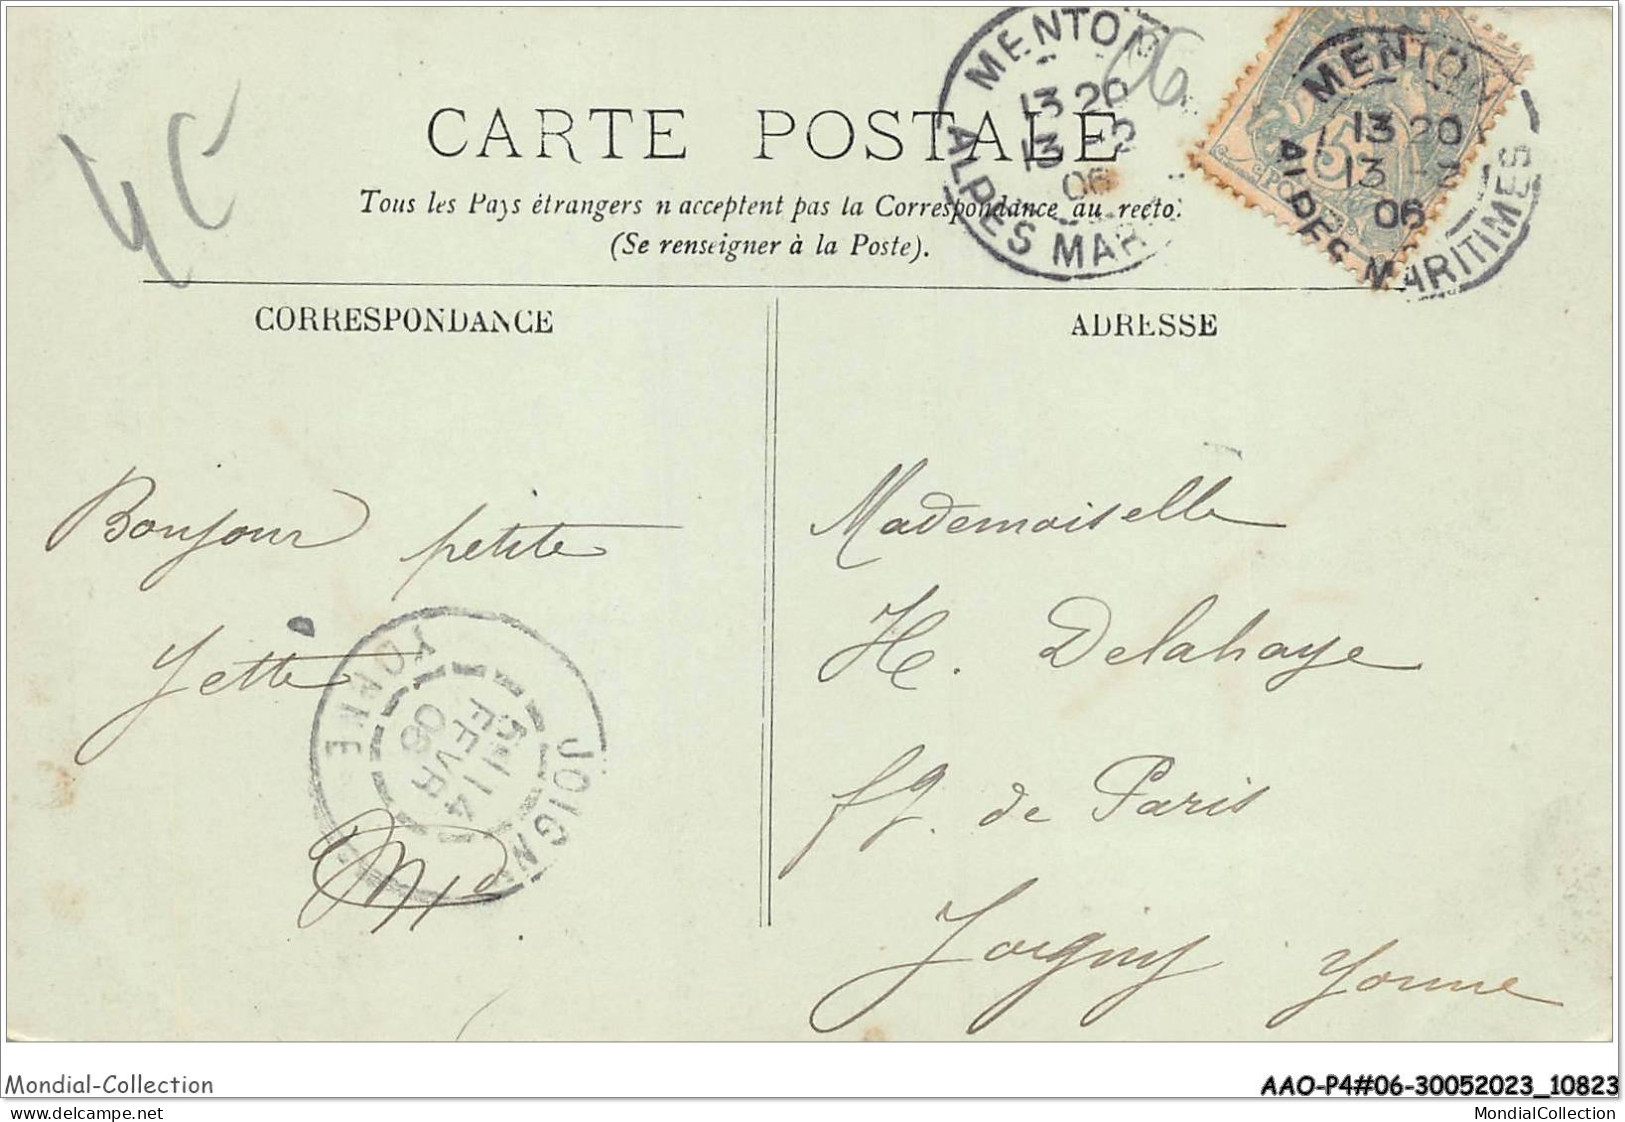 4C
06
CARTE POSTALE
Tous les Pays étrangers n'acceptent pas la Correspondance au recto.
(Se renseigner à la Poste).
MENTON
13 20
13 -2
06
ALPES MAR
MENTON
13 20
13 -2
06
ALPES MARITIMES
5
POSTES
CORRESPONDANCE
ADRESSE
Bonjour petite
Yette
JOIGNY
YONNE
14
FEVR
06
Mademoiselle
H. Delahaye
fg. de Paris
Joigny Yonne
Mondial-Collection
AAO-P4#06-30052023_10823
delcampe.net
MondialCollection